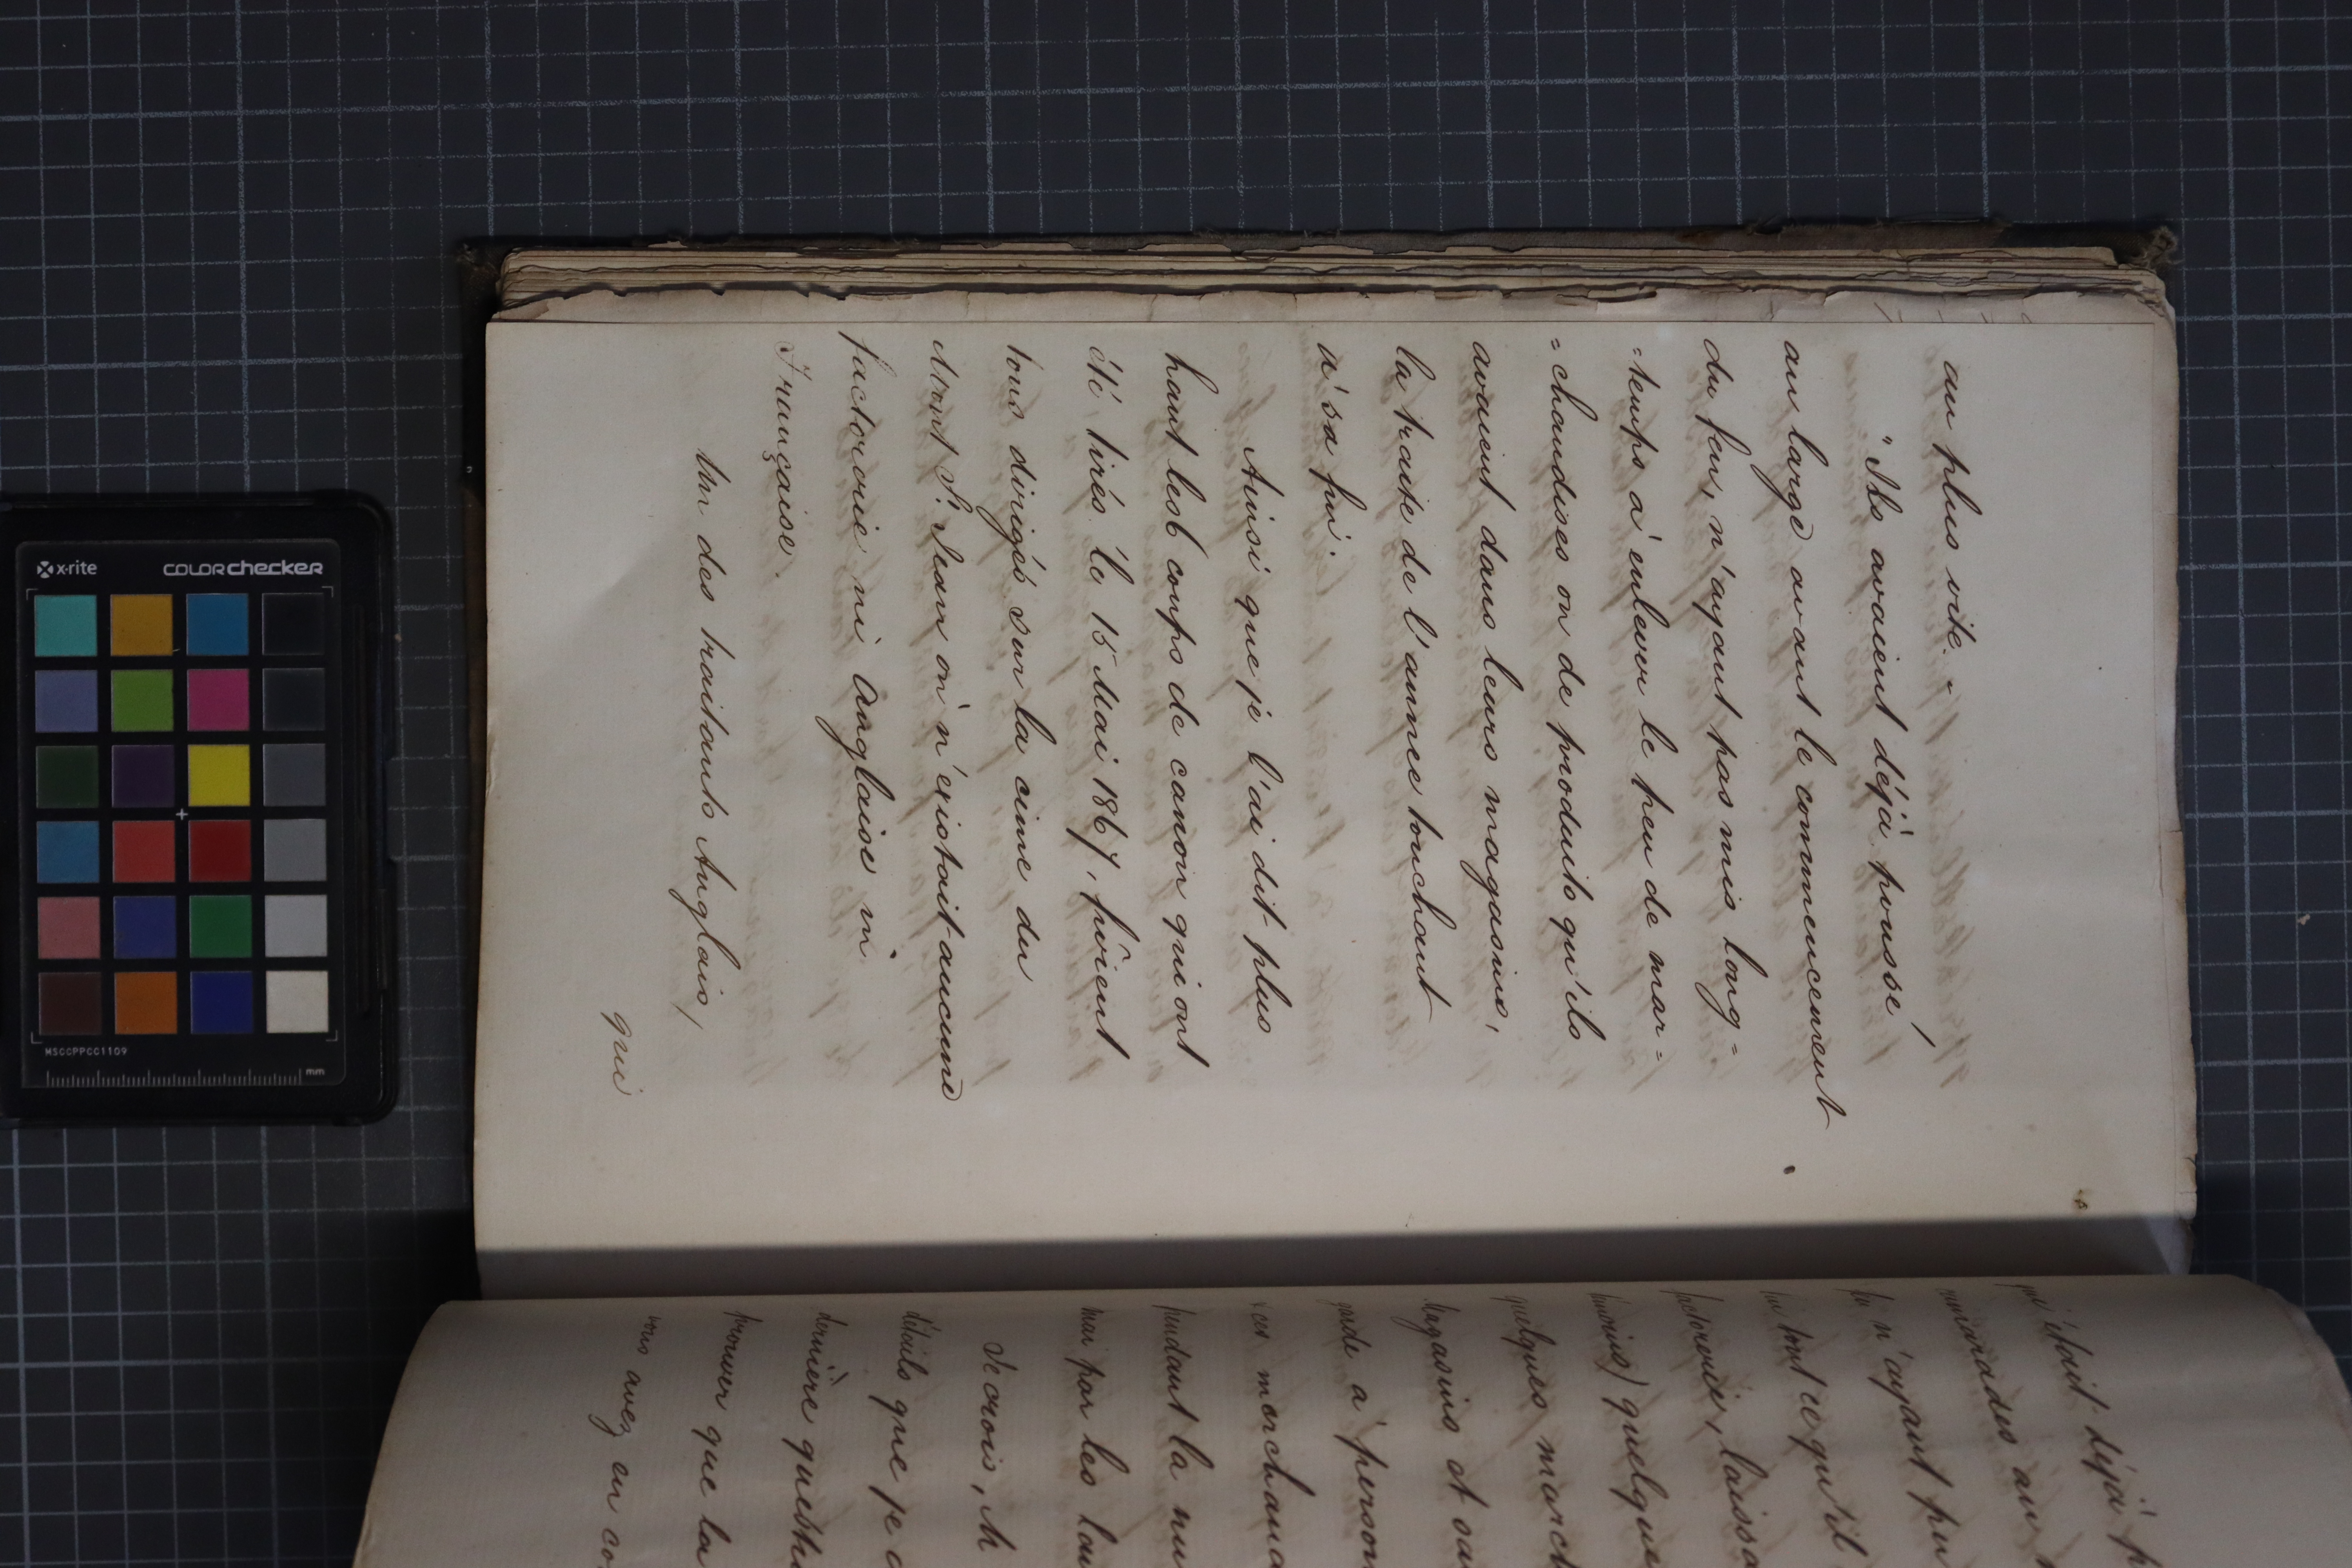 au plus vite. -
"Ils avaient déjà poussé
au large avant le commencement
du feu, n'ayant pas mis long=
=temps à enlever le peu de mar=
=chandises ou de produits qu'ils
avaient dans leurs magasins,
la traite de l'annee touchant
à sa fin.
Ainsi que je l'ai dit plus
haut les 6 coups de canon qui ont
été tirés le 15 Mai 1867, fûrent
tous dirigés sur la cime du
Mont St. Jean où n'existait aucune
factorerie ni Anglaise ni
Française.
Un des traitants Anglais,
qui
qui était déjà
camarades au
lui n'ayant pu
factorerie, laissa
quelque
quelques march
Magasins et ou
garde à person
ces marchand
pendant la nu
moi par les
Je crois, M
détails que je
dernière question
prouver que la
vous avez en co
x-rite
colorchecker
MSCCPPCC1109
mm